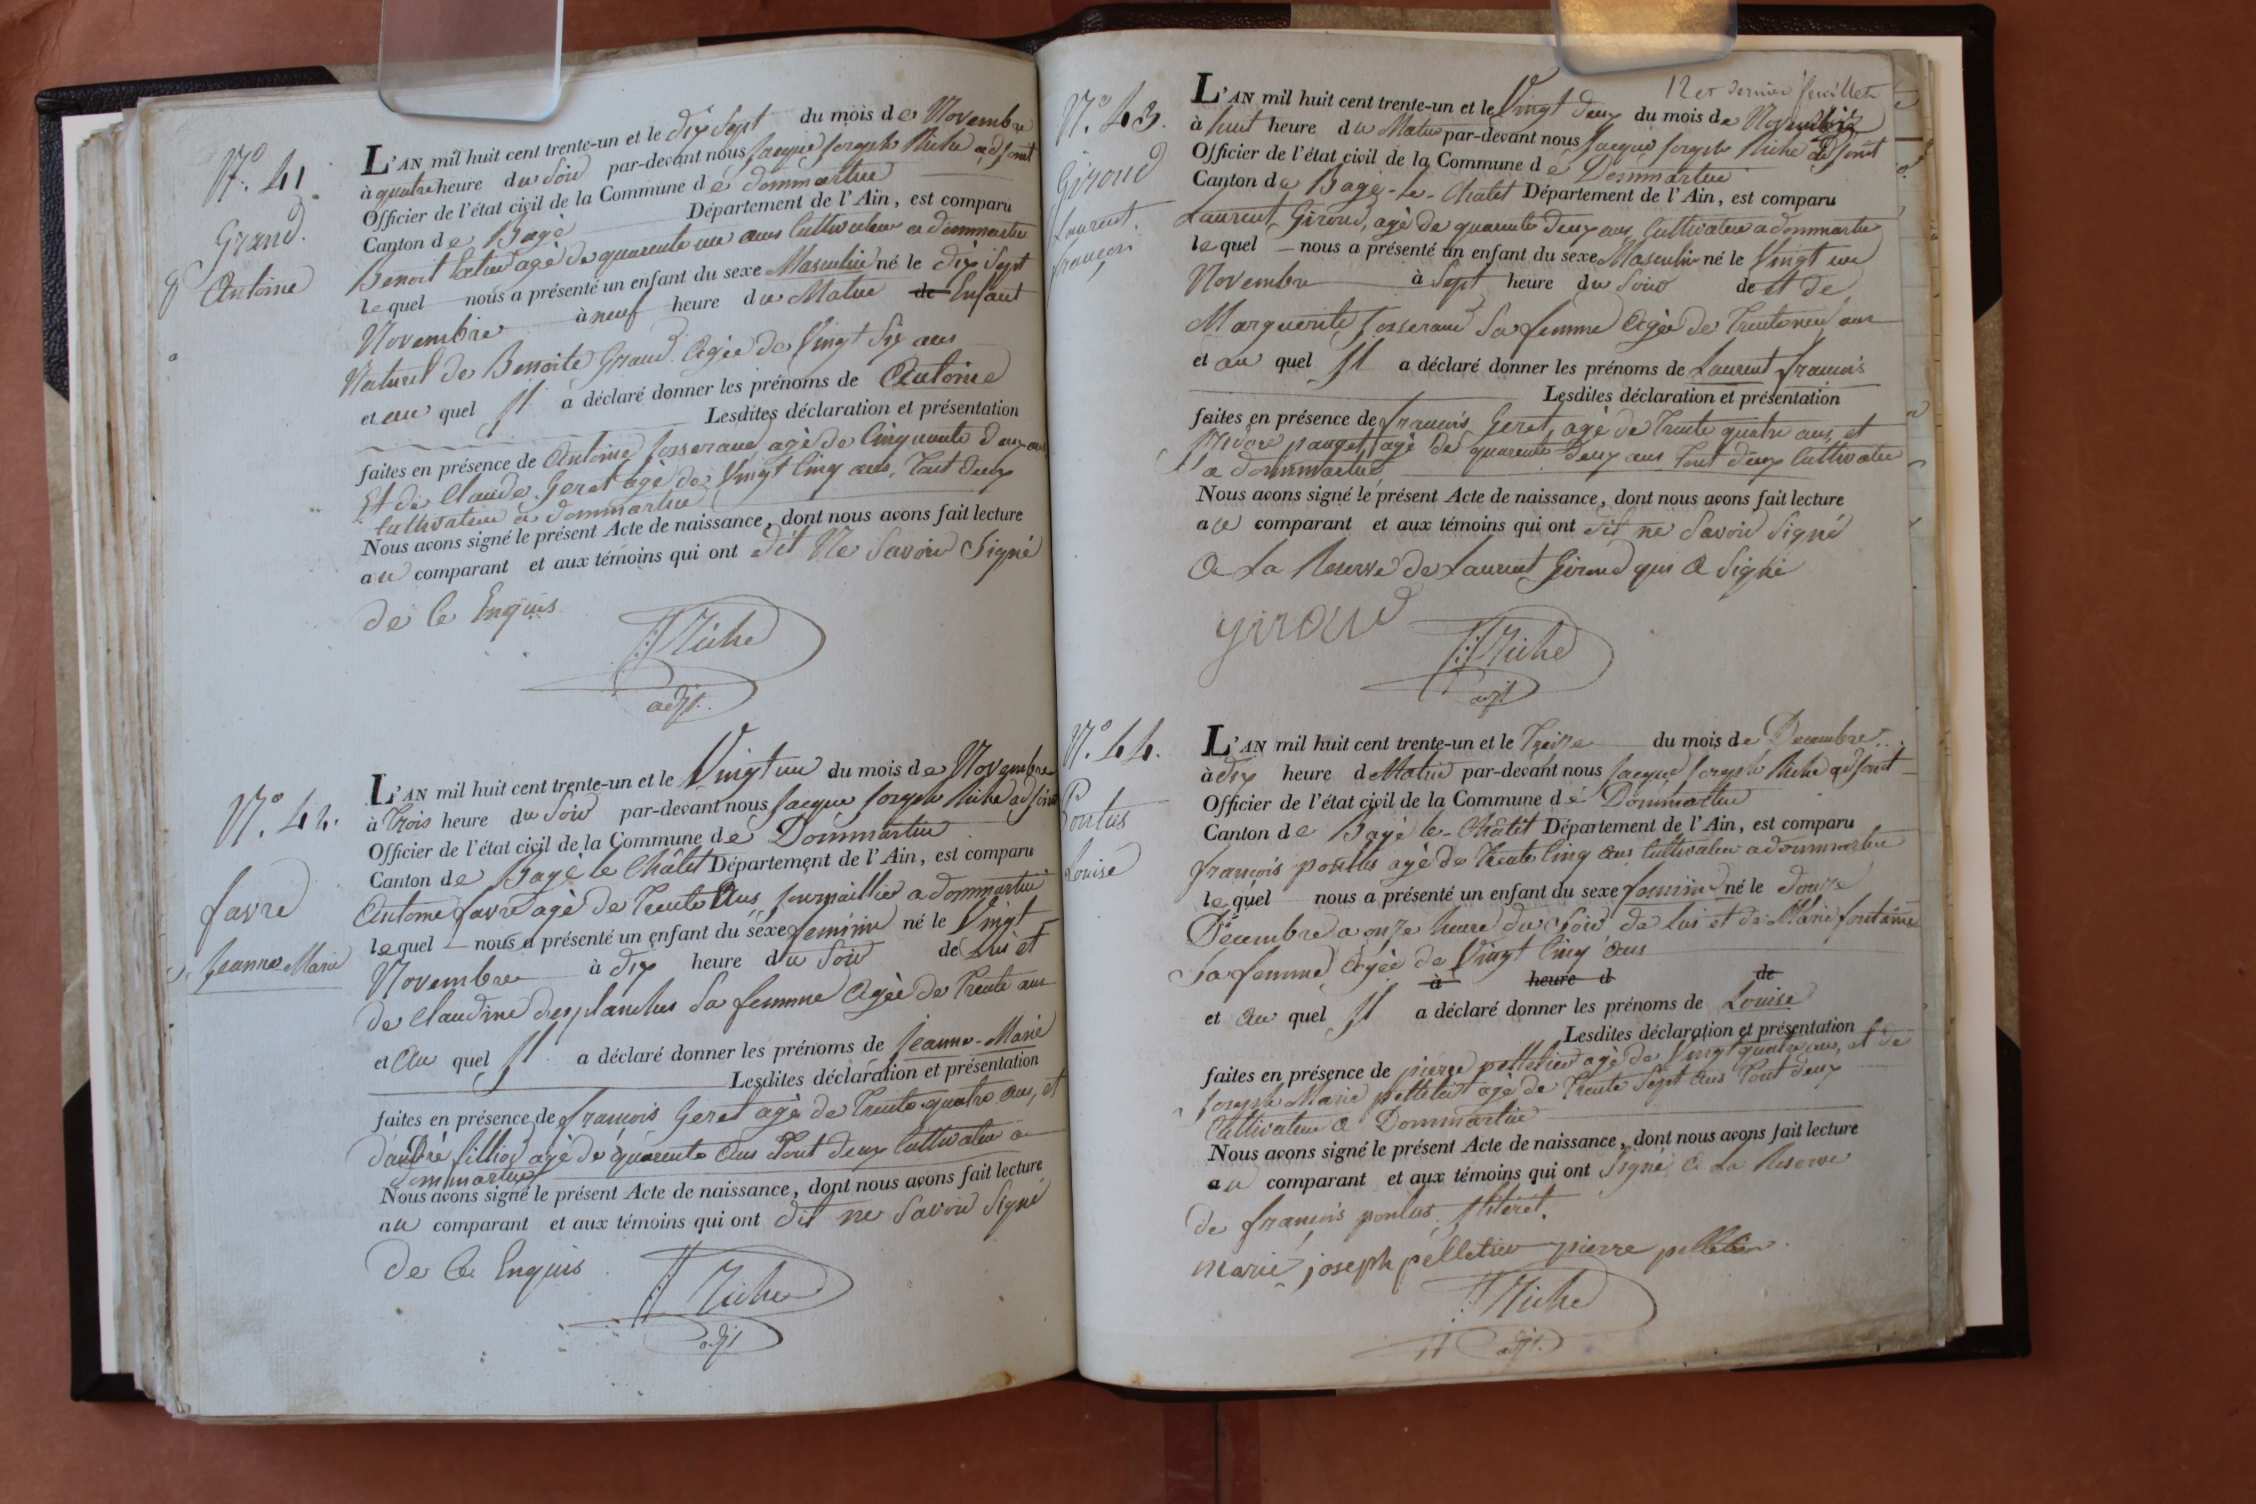 N.° 41.
Grand.
Antoine
L'AN mil huit cent trente-un et le dix Sept du mois de Novembre
à quatre heure du Soir par-devant nous Jacque Joseph Niche adjoint
Officier de l'état civil de la Commune de dommartin
Canton de Bagé Département de l'Ain, est comparu
Benoit agé de quarente un ans Cultivateur a dommartin
lequel nous a présenté un enfant du sexe Masculin né le dix Sept
Novembre à neuf heure du Matin de Enfant
Naturel de Benoite Grand Agée de Vingt Six ans
et au quel Il a déclaré donner les prénoms de Antoine
Lesdites déclaration et présentation
faites en présence de Antoine Josserand agé de Cinquente deux ans
Et de Claude Geret agé de Vingt Cinq ans, Tout deux
Cultivateur a dommartin
Nous avons signé le présent Acte de naissance, dont nous avons fait lecture
au comparant et aux témoins qui ont dit Ne Savoir Signé
de Ce Enquis
Niche
adjt.
N.° 42.
favre
Jeanne Marie
L'AN mil huit cent trente-un et le Vingt un du mois de Novembre
à Trois heure du Soir par-devant nous Jacque Joseph Niche adjoint
Officier de l'état civil de la Commune de Dommartin
Canton de Bagé le Châtel Département de l'Ain, est comparu
Antoine favre agé de Trente Ans Journaillier a dommartin
lequel nous a présenté un enfant du sexe feminin né le Vingt
Novembre à dix heure du Soir de Lui et
de Claudine desplanches Sa femme Agée de Trente ans
et Au quel Il a déclaré donner les prénoms de Jeanne-Marie
Lesdites déclaration et présentation
faites en présence de françois Geret agé de Trente quatre ans, et
d'andré fillion agé de quarente Ans Tout deux Cultivateur a
Dommartin
Nous avons signé le présent Acte de naissance, dont nous avons fait lecture
au comparant et aux témoins qui ont dit ne Savoir Signé
de Ce Enquis
Niche
adjt
12 et dernier feuillet
N.° 43.
Giroud
Laurent.
françois
L'AN mil huit cent trente-un et le Vingt deux du mois de Novembre
à huit heure du Matin par-devant nous Jacque Joseph Niche adjoint
Officier de l'état civil de la Commune de Dommartin
Canton de Bagé-le-Chatel Département de l'Ain, est comparu
Laurent Giroud, agé de quarente deux ans Cultivateur a dommartin
lequel nous a présenté un enfant du sexe Masculin né le Vingt un
Novembre à Sept heure du Soir de et de
Marguerite Josserand Sa femme Agée de Trente neuf ans
et au quel Il a déclaré donner les prénoms de Laurent françois
Lesdites déclaration et présentation
faites en présence de françois Geret, agé de Trente quatre ans, et
agé de quarente deux ans Tout deux Cultivateur
a dommartin
Nous avons signé le présent Acte de naissance, dont nous avons fait lecture
au comparant et aux témoins qui ont dit ne Savoir Signé
A La Reserve de Laurent Giroud qui A Signé
giroud
Niche
adjt
N.° 44.
Pontus
Louise
L'AN mil huit cent trente-un et le Treize du mois de Decembre
à dix heure d Matin par-devant nous Jacque Joseph Niche adjoint
Officier de l'état civil de la Commune de Dommartin
Canton de Bagé le-Châtel Département de l'Ain, est comparu
françois pontus agé de Trente Cinq ans Cultivateur a dommartin
lequel nous a présenté un enfant du sexe feminin né le douze
Decembre a onze heure du Soir de lui et de Marie fontaine
Sa femme Agée de Vingt Cinq Ans
à heure d de
et Au quel Il a déclaré donner les prénoms de Louise
Lesdites déclaration et présentation
faites en présence de pierre pelletier agé de Vingt quatre ans, et de
Joseph Marie pelletier agé de Trente Sept Ans Tout deux
Cultivateur A Dommartin
Nous avons signé le présent Acte de naissance, dont nous avons fait lecture
au comparant et aux témoins qui ont Signé A La Reserve
de françois pontus Illiteret.
marie joseph pelletier pierre pelletier
Niche
adjt.